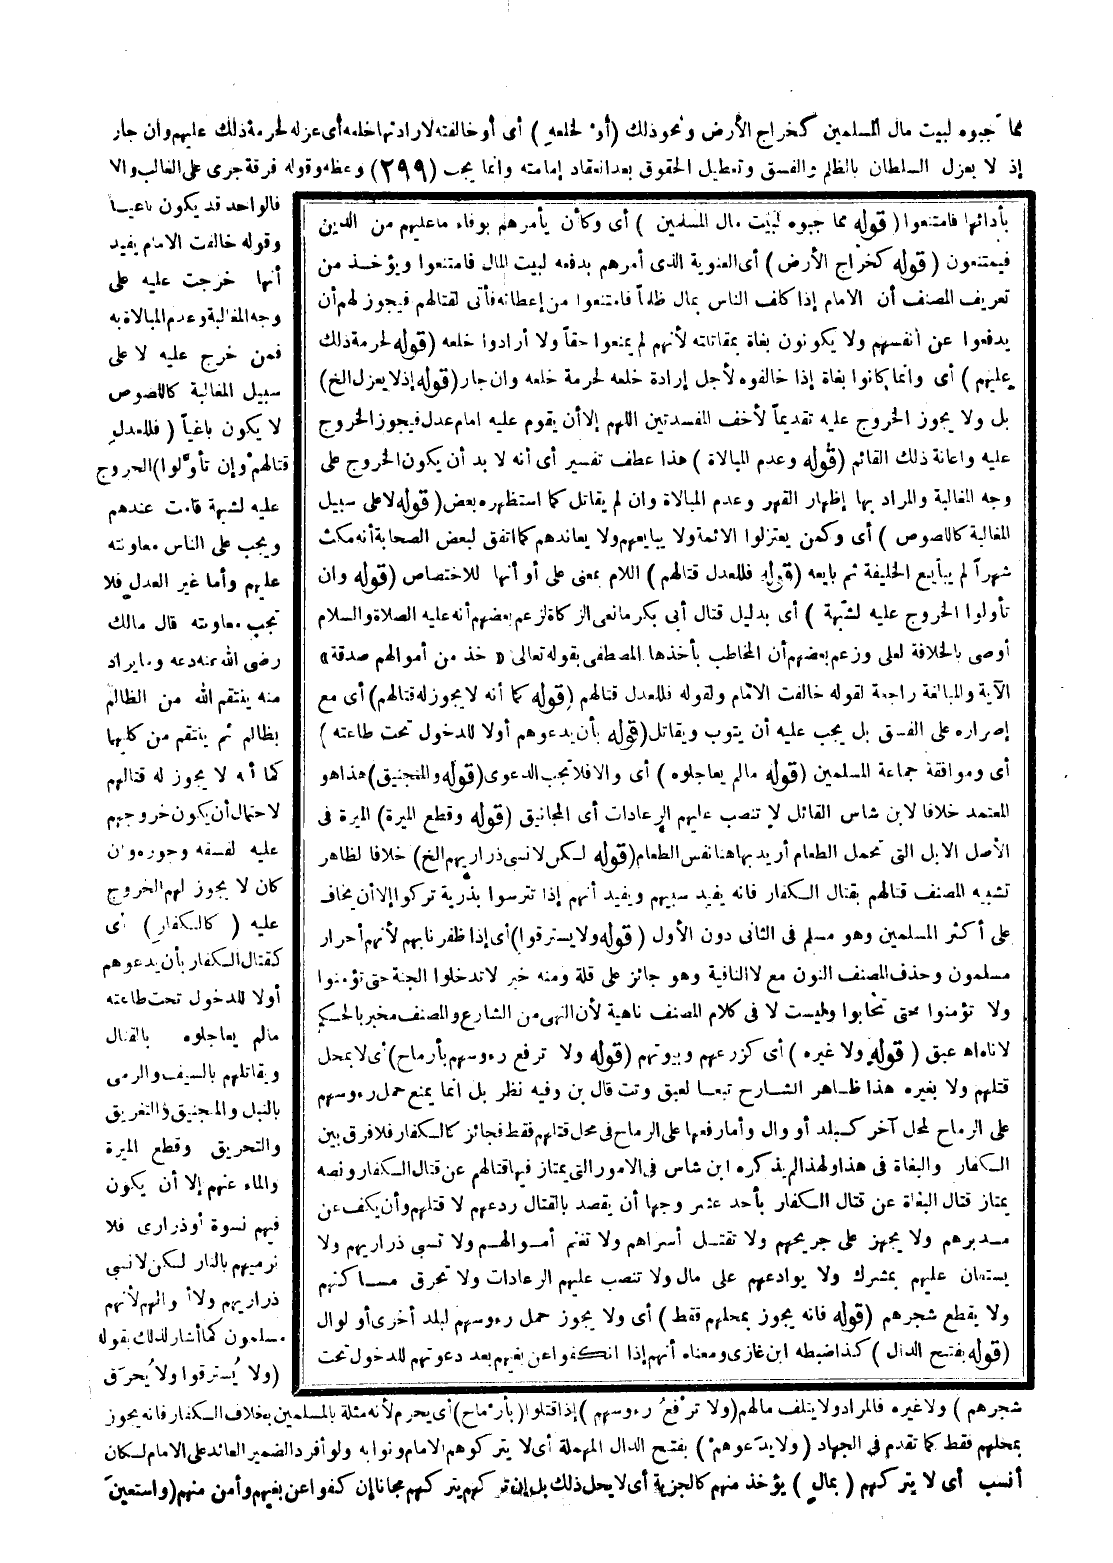 مما جبوه لبيت مال المسلمين كخراج الأرض ونحو ذلك (أو لخلعه) أى أو خالفته لارادتها خلعه أى عزله لحرمة ذلك عليهم وان جار
إذ لا يعزل السلطان بالظلم والفسق وتعطيل الحقوق بعد انعقاد إمامته وانما يجب (٢٩٩) وعظه وقوله فرقة جرى على الغالب والا
فالواحد قد يكون باغيا
وقوله خالفت الامام يفيد
أنها خرجت عليه على
وجه المغالبة وعدم المبالاة به
فمن خرج عليه لا على
سبيل المغالبة كاللصوص
لا يكون باغياً (فللعدل
قتالهم وإن تأولوا) الخروج
عليه لشبهة قامت عندهم
ويجب على الناس معاونته
عليهم وأما غير العدل فلا
تجب معاونته قال مالك
رضى الله عنه دعه وما يراد
منه ينتقم الله من الظالم
بظالم ثم ينتقم من كليهما
كما أنه لا يجوز له قتالهم
لاحتمال أن يكون خروجهم
عليه لفسقه وجوره وان
كان لا يجوز لهم الخروج
عليه (كالكفار) أى
كقتال الكفار بأن يدعوهم
أولا للدخول تحت طاعته
مالم يعاجلوه بالقتال
ويقاتلهم بالسيف والرمى
بالنبل والمنجنيق والتغريق
والتحريق وقطع الميرة
والماء عنهم إلا أن يكون
فيهم نسوة أو ذرارى فلا
نرميهم بالنار لكن لا نسبى
ذراريهم ولا أموالهم لأنهم
مسلمون كما أشار لذلك بقوله
(ولا يُسترقوا ولا يُحرَق
بأدائها فامتنعوا (قوله مما جبوه لبيت مال المسلمين) أى وكأن يأمرهم بوفاء ماعليهم من الدين
فيمتنعون (قوله كخراج الأرض) أى العنوية الذى أمرهم بدفعه لبيت المال فامتنعوا ويؤخذ من
تعريف المصنف أن الامام إذا كلف الناس بمال ظلماً فامتنعوا من إعطائه فأتى لقتالهم فيجوز لهم أن
يدفعوا عن أنفسهم ولا يكونون بغاة بمقاتلته لأنهم لم يمنعوا حقاً ولا أرادوا خلعه (قوله لحرمة ذلك
عليهم) أى وانما كانوا بغاة إذا خالفوه لأجل إرادة خلعه لحرمة خلعه وان جار (قوله إذ لا يعزل الخ)
بل ولا يجوز الخروج عليه تقديماً لأخف المفسدتين اللهم إلا أن يقوم عليه امام عدل فيجوز الخروج
عليه واعانة ذلك القائم (قوله وعدم المبالاة) هذا عطف تفسير أى أنه لا بد أن يكون الخروج على
وجه المغالبة والمراد بها إظهار القهر وعدم المبالاة وان لم يقاتل كما استظهره بعض (قوله لا على سبيل
المغالبة كاللصوص) أى وكمن يعتزلوا الائمة ولا يبايعهم ولا يعاندهم كما اتفق لبعض الصحابة أنه مكث
شهراً لم يبايع الخليفة ثم بايعه (قوله فللعدل قتالهم) اللام بمعنى على أو أنها للاختصاص (قوله وان
تأولوا الخروج عليه لشبهة) أى بدليل قتال أبى بكر مانعى الزكاة لزعم بعضهم أنه عليه الصلاة والسلام
أوصى بالخلافة لعلى وزعم بعضهم أن المخاطب بأخذها المصطفى بقوله تعالى « خذ من أموالهم صدقة »
الآية والمبالغة راجعة لقوله خالفت الامام ولقوله فللعدل قتالهم (قوله كما أنه لا يجوز له قتالهم) أى مع
إصراره على الفسق بل يجب عليه أن يتوب ويقاتل (قوله بأن يدعوهم أولا للدخول تحت طاعته)
أى وموافقة جماعة المسلمين (قوله مالم يعاجلوه) أى والا فلا تجب الدعوى (قوله والمنجنيق) هذا هو
المعتمد خلافا لابن شاس القائل لا تنصب عليهم الرعادات أى المجانيق (قوله وقطع الميرة) الميرة فى
الأصل الابل التى تحمل الطعام أريد بها هنا نفس الطعام (قوله لكن لا نسبى ذراريهم الخ) خلافا لظاهر
تشبيه المصنف قتالهم بقتال الكفار فانه يفيد سبيهم ويفيد أنهم إذا تترسوا بذرية تركوا إلا أن يخاف
على أكثر المسلمين وهو مسلم فى الثانى دون الأول (قوله ولا يسترقوا) أى إذا ظفرنا بهم لأنهم أحرار
مسلمون وحذف المصنف النون مع لا النافية وهو جائز على قلة ومنه خبر لا تدخلوا الجنة حتى تؤمنوا
ولا تؤمنوا حتى تحابوا وليست لا فى كلام المصنف ناهية لأن النهى من الشارع والمصنف مخبر بالحكم
لا ناه اه عبق (قوله ولا غيره) أى كزرعهم وبيوتهم (قوله ولا ترفع رءوسهم بأرماح) أى لا بمحل
قتلهم ولا بغيره هذا ظاهر الشارح تبعا لعبق وتت قال بن وفيه نظر بل انما يمنع حمل رءوسهم
على الرماح لمحل آخر كبلد أو وال وأما رفعها على الرماح فى محل قتلهم فقط فجائز كالكفار فلا فرق بين
الكفار والبغاة فى هذا ولهذا لم يذكره ابن شاس فى الامور التى يمتاز فيها قتالهم عن قتال الكفار ونصه
يمتاز قتال البغاة عن قتال الكفار بأحد عشر وجها أن يقصد بالقتال ردعهم لا قتلهم وأن يكف عن
مدبرهم ولا يجهز على جريحهم ولا تقتل أسراهم ولا تغنم أموالهم ولا تسبى ذراريهم ولا
يستعان عليهم بمشرك ولا يوادعهم على مال ولا تنصب عليهم الرعادات ولا تحرق مساكنهم
ولا يقطع شجرهم (قوله فانه يجوز بمحلهم فقط) أى ولا يجوز حمل رءوسهم لبلد أخرى أو لوال
(قوله بفتح الدال) كذا ضبطه ابن غازى ومعناه أنهم إذا انكفوا عن بغيهم بعد دعوتهم للدخول تحت
شجرهم) ولا غيره فالمراد ولا يتلف مالهم (ولا ترفع رءوسهم) إذا قتلوا (بأرماح) أى يحرم لأنه مثلة بالمسلمين بخلاف الكفار فانه يجوز
بمحلهم فقط كما تقدم فى الجهاد (ولا يدَعوهم) بفتح الدال المهملة أى لا يتركوهم الامام ونوابه ولو أفرد الضمير العائد على الامام لكان
أنسب أى لا يتركهم (بمال) يؤخذ منهم كالجزية أى لا يحل ذلك بل إن تركهم يتركهم مجانا إن كفوا عن بغيهم وأمن منهم (واستعينَ